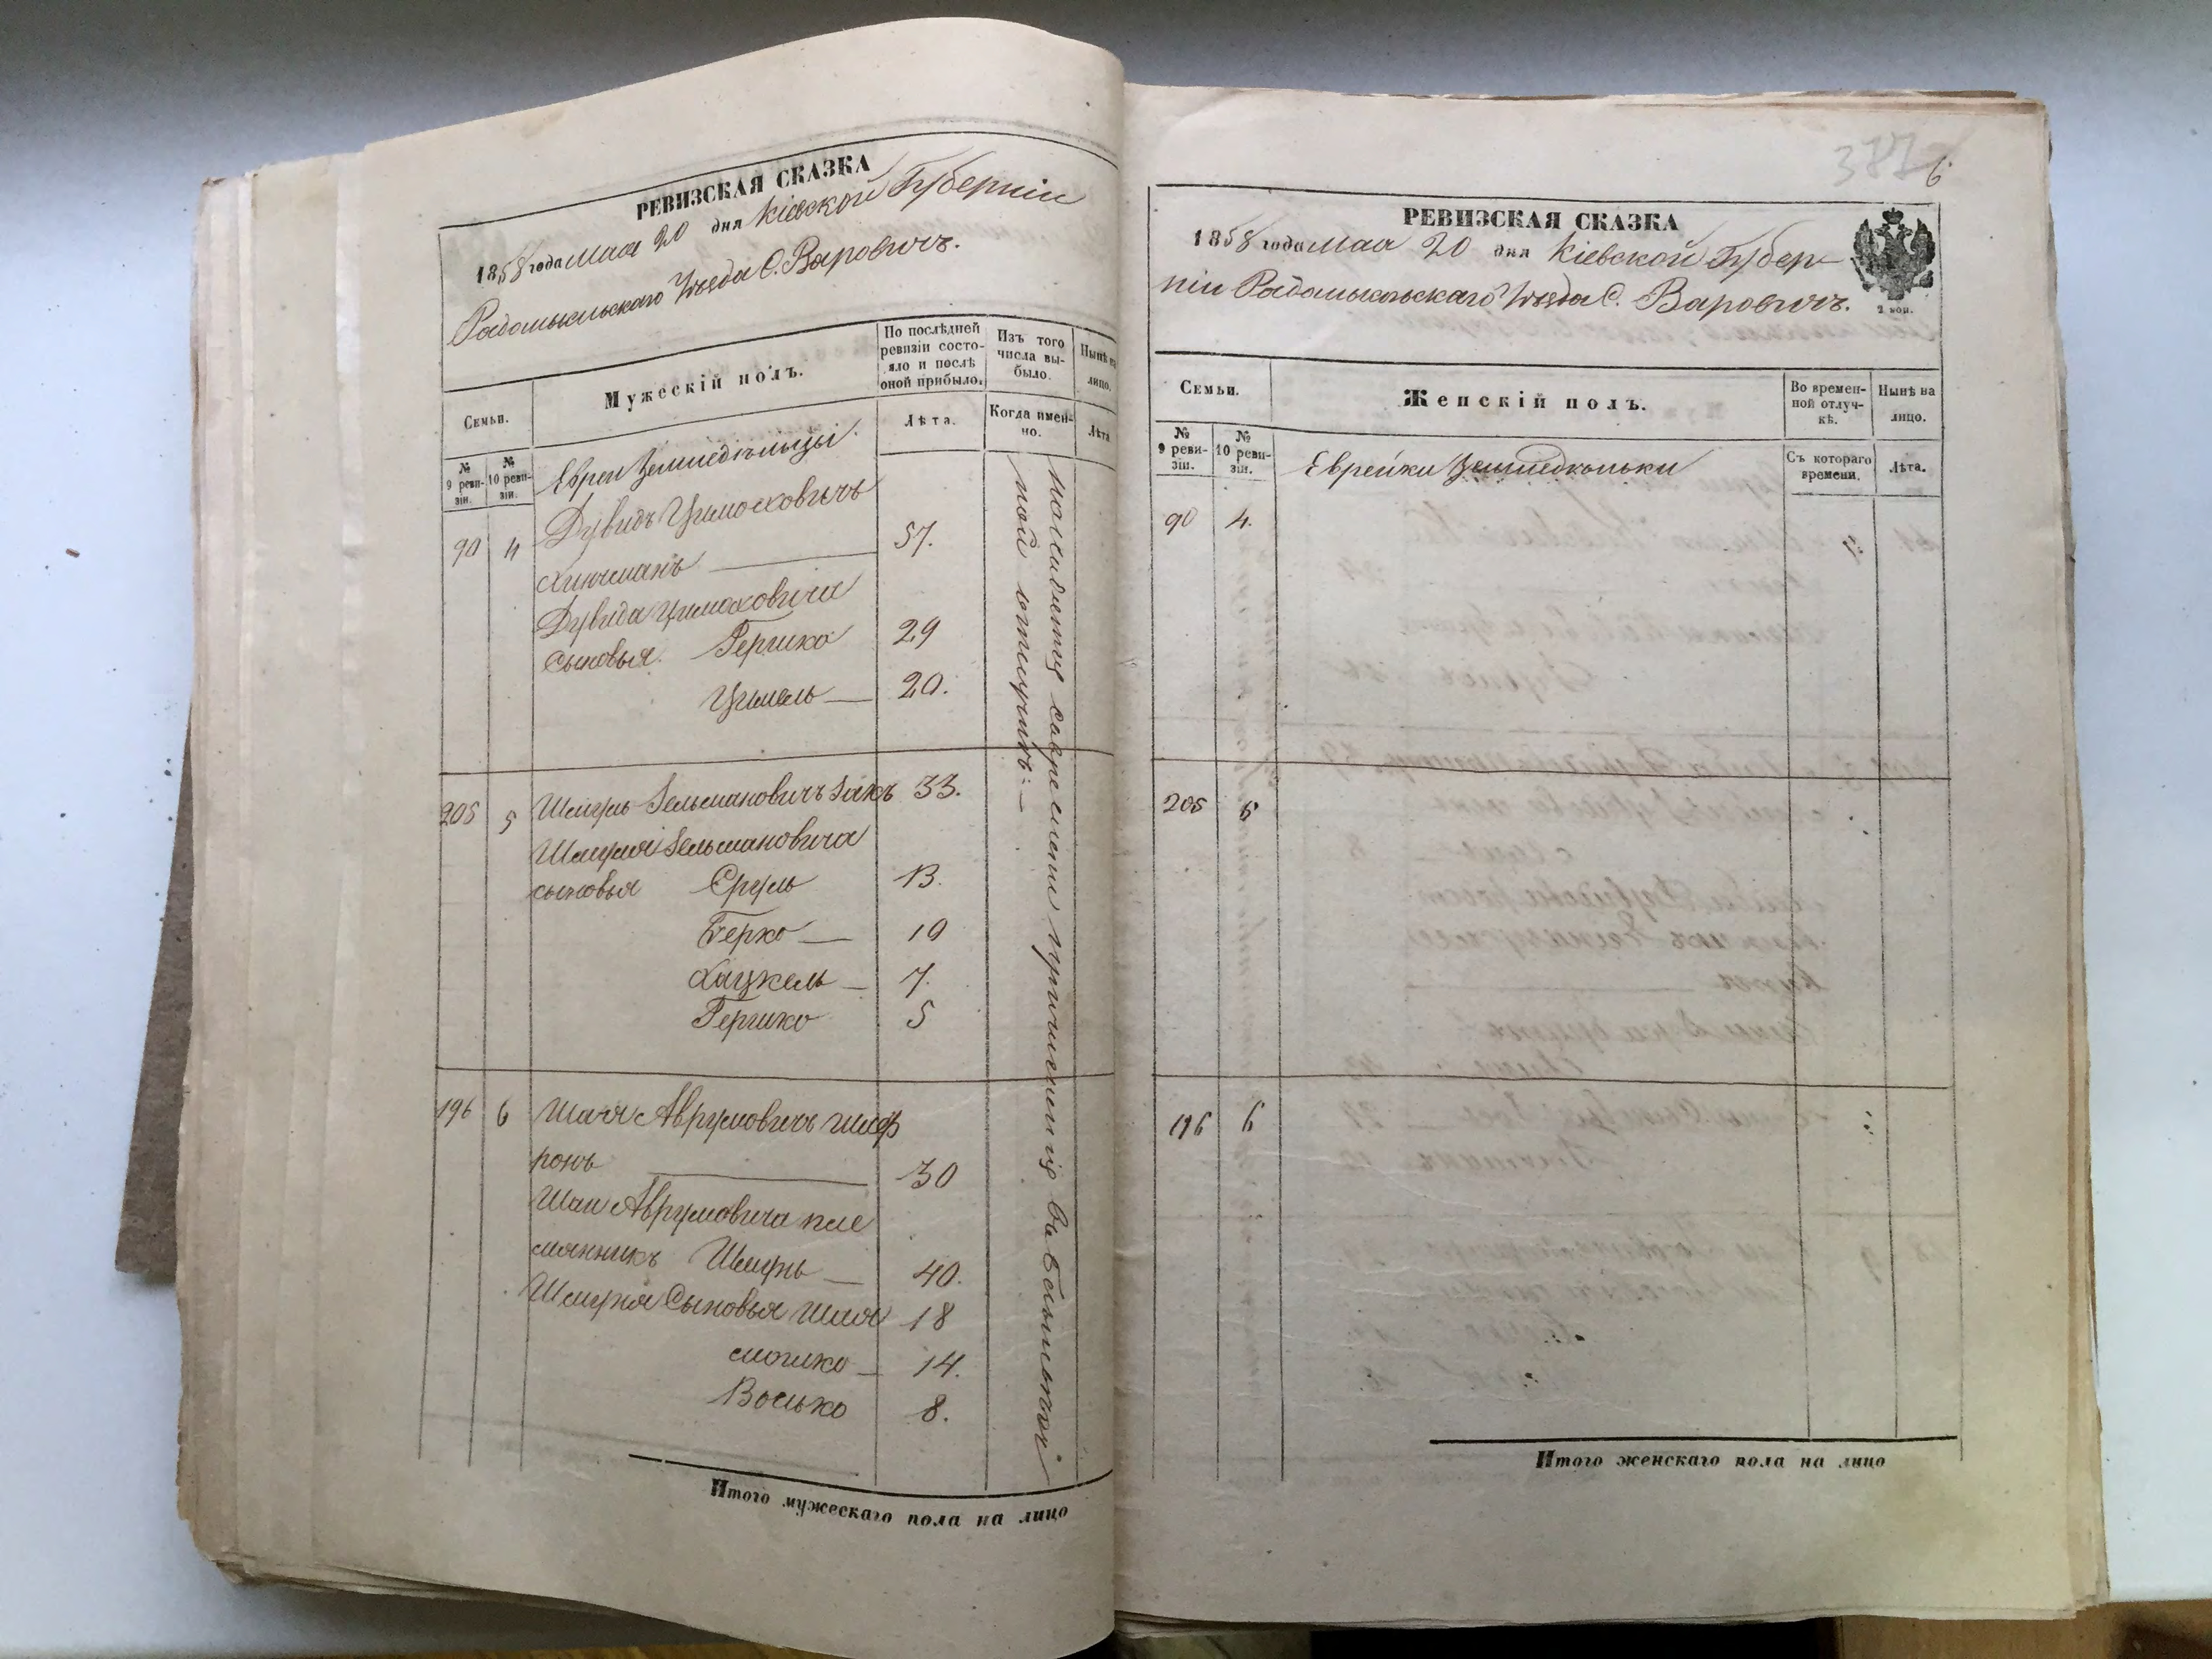 РЕВИЗСКАЯ СКАЗКА
1858 года мая 20 дня Кіевской Губерніи
Радомысльскаго Уѣзда С. Варовичъ.
Семьи.
Мужескій полъ.
По послѣдней ревизіи состояло и послѣ оной прибыло.
Изъ того числа выбыло.
Нынѣ на лицо.
№ 9 ревизіи.
№ 10 ревизіи.
Лѣта.
Когда именно.
Лѣта
Евреи Земледѣльцы.
Дувидъ Цимоховичъ
90 4 57.
Дувида Цимоховича
сыновья. Гершко 29
Цимель 20.
205 5 Шмуль Зельмановичъ Закъ 33.
Шмуля Зельмановича
сыновья Сруль 13.
Берко 10
Хацкель 7.
Гершко 5
196 6 Шая Аврумовичъ Шиф
ронъ 30
Шаи Аврумовича пле
мянникъ Шмунь 40.
Шмуня Сыновья Шая 18
Мошко 14.
Восько 8.
причисленія
ной отлучкѣ:
Итого мужескаго пола на лицо
377
6
РЕВИЗСКАЯ СКАЗКА
1858 года мая 20 дня Кіевской Губер-
ніи Радомысльскаго Уѣзда С. Варовичъ.
2 коп.
Семьи.
Женскій полъ.
Во временной отлучкѣ.
Нынѣ на лицо.
№ 9 ревизіи.
№ 10 ревизіи.
Съ котораго времени.
Лѣта.
Еврейки Земледѣльки
90 4.
205 5
196 6
Итого женскаго пола на лицо